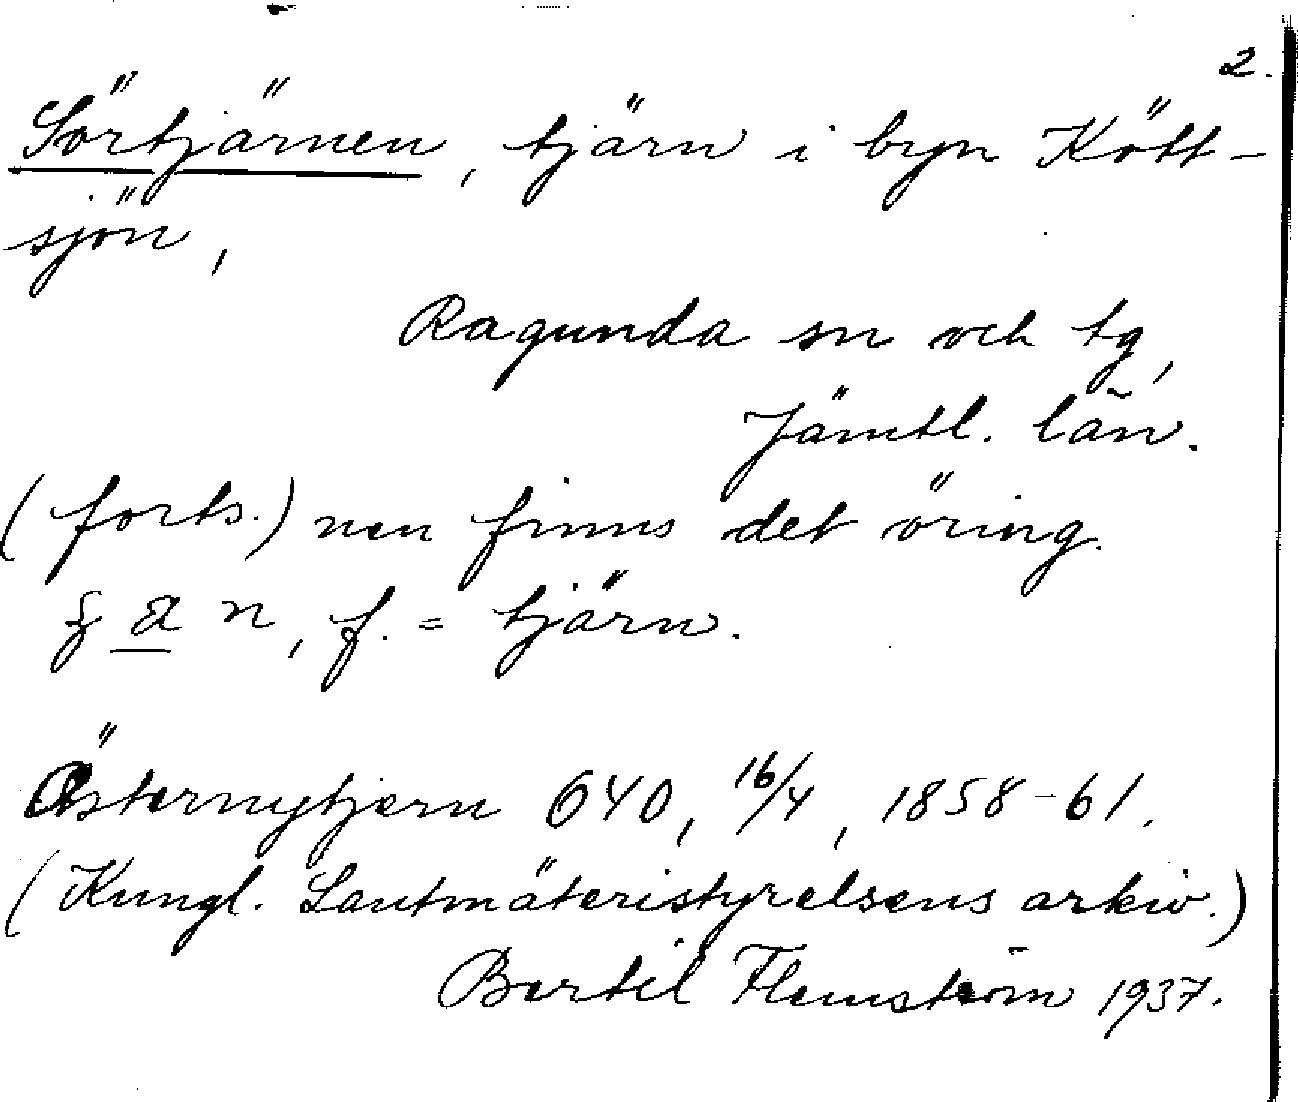 2.
Sörtjärnen, tjärn i byn Kött-
sjön,
Ragunda sn och tg,
Jämtl. län.
(forts.) nen finns det öring.
n, f. = tjärn.
Östernytjern 640, 16/4, 1858-61.
(Kungl. Lantmäteristyrelsens arkiv.)
Bertil Flemström 1937.